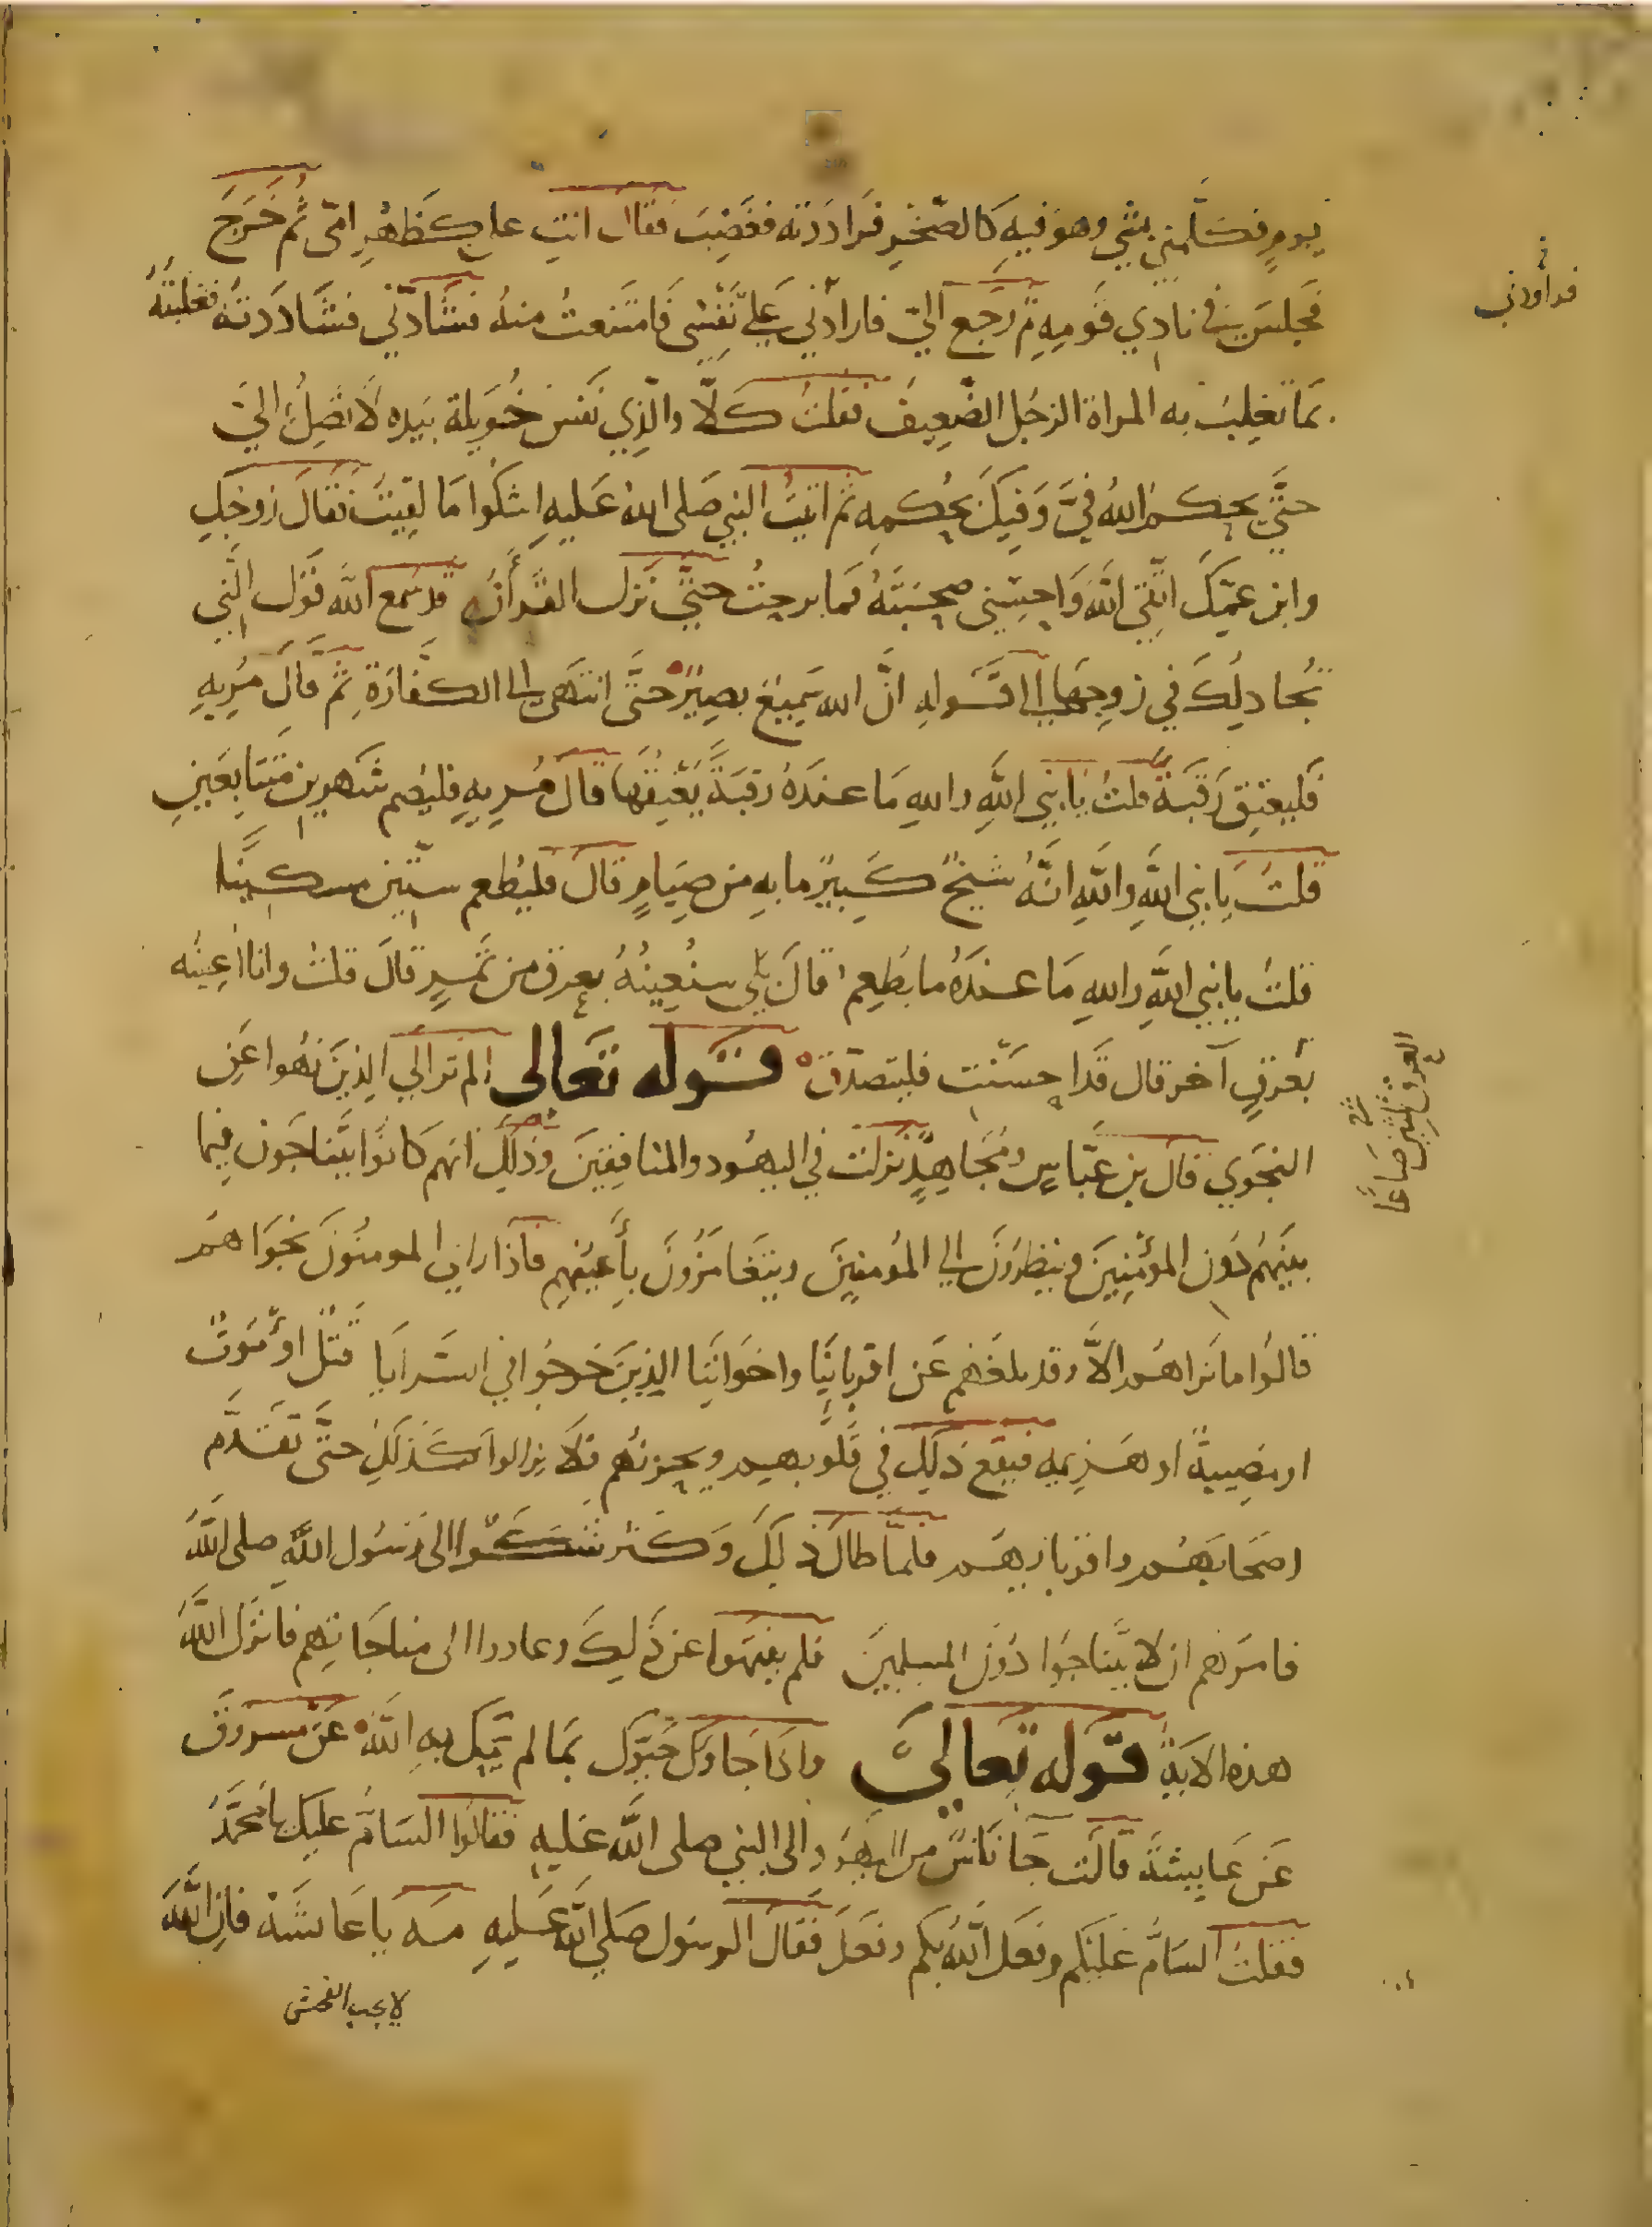 يومٍ فكَلَّمني بشي وهو فيهِ كالصَّخرِ فرادَدته فغَضِبَ فقال انتِ علي كظهرِ امّي ثُم خَرجَ
فجلسَ في نادِي قَومِهِ ثم رَجع اليّ فارادَني عَلي نَفسي فامتنعتُ منهُ فشَادّني فشَادَدتهُ فغلبتُهُ
بمَا تغلِبُ به المراة الرجُل الضَّعِيفَ فقلتُ كلّا والّذِي نَفسُ خُوَيلة بيَدِه لا تَصِلُ اليَّ
حتَّي يحكم اللهُ فيَّ وَفيكَ بحُكمِه ثم اتيتُ النبي صَلى اللهُ عَليهِ اشكُوا مَا لقِيتُ فقالَ زوجكِ
وابن عمّكَ اتّقي اللهَ وَاحسِني صحبَتَهُ فمَا برحتُ حتّي نَزل القُرأنُ قد سَمع اللهَ قَول الّتي
تُجادِلُكَ في زوجِهَا الي قَولِهِ انَّ الله سَميع بصِيرٌ حتَّى انتَهى الى الكفَّارَةِ ثمَّ قالَ مُرِيهِ
فَليعتِق رَقبَةً قلتُ يا نبي اللهِ واللهِ مَا عندَهُ رَقبَةً يُعتِقُهَا قالَ مُرِيهِ فليصُم شهرين متتابِعَينِ
قلتُ يا نبي اللهِ واللهِ انَّهُ شيخٌ كَبيرٌ ما بهِ من صِيَامٍ قالَ فليُطعم ستّين مسكينًا
قلتُ يا نبي اللهِ واللهِ مَا عندَهُ ما يُطعِم قالَ بَلي سنُعِينُهُ بعرق من تَمرٍ قالَ قلتُ وانا اُعِينُه
بعَرقٍ آخر قال قد احسَنتِ فليتصدّق قوله تعالى الم تر الي الذِينَ نُهوا عَنِ
النجوَي قالَ بن عَبّاسٍ ومُجَاهِدٍ نَزلت في اليهُود والمنافِقينَ وذلكَ انهم كانُوا يتَناجَون فِيما
بينَهُم دُون المؤمِنِينَ وينظرُونَ الي المُومنينَ ويتغَامَزُونَ بأَعيُنِهِم فاذا راي المومنُونَ نجوَاهُم
قالوُا ما نَراهُم الاَّ وقد بلغَهُم عَن اقرِبائِنَا واخوَانِنَا الذِينَ خرجُوا في السَرايَا قَتلٌ او مَوتٌ
او مصِيبةً او هَزيمه فيقع ذلِك في قلُوبهِم ويحزنُهم فلا يزالوا كذلكَ حتَّى تقدَّم
اصحَابهُم واقرباؤهم فلمَّا طالَ ذلِكَ وَكثُرَ شَكَوا الى رَسُول اللهِ صلى اللهُ
فامَرهم ان لا يتَناجَوا دُونَ المسلمِينَ فلم ينتَهوا عن ذلِكَ وعادوا الى مناجَاتهِم فانزل اللهُ
هذه الايَة قوله تعالى واذا جاوك حَيّوك بمَا لم يُحيّك بهِ اللهُ عن مسروق
عَن عَايِشةَ قالَت جَا نَاسٌ من اليهُود الى النبي صلى اللهُ عَليهِ فقالوُا السَامُ عليك يا مُحمَّدُ
فقلتُ السَامُ عَليكم وفعَل اللهُ بكم وفعَل فقالَ الرسُول صَلي اللهُ عَليهِ مَه يا عَايشَة فانّ اللهَ
لا يحب الفحش
فراودني
العرق ستين صَاعًا